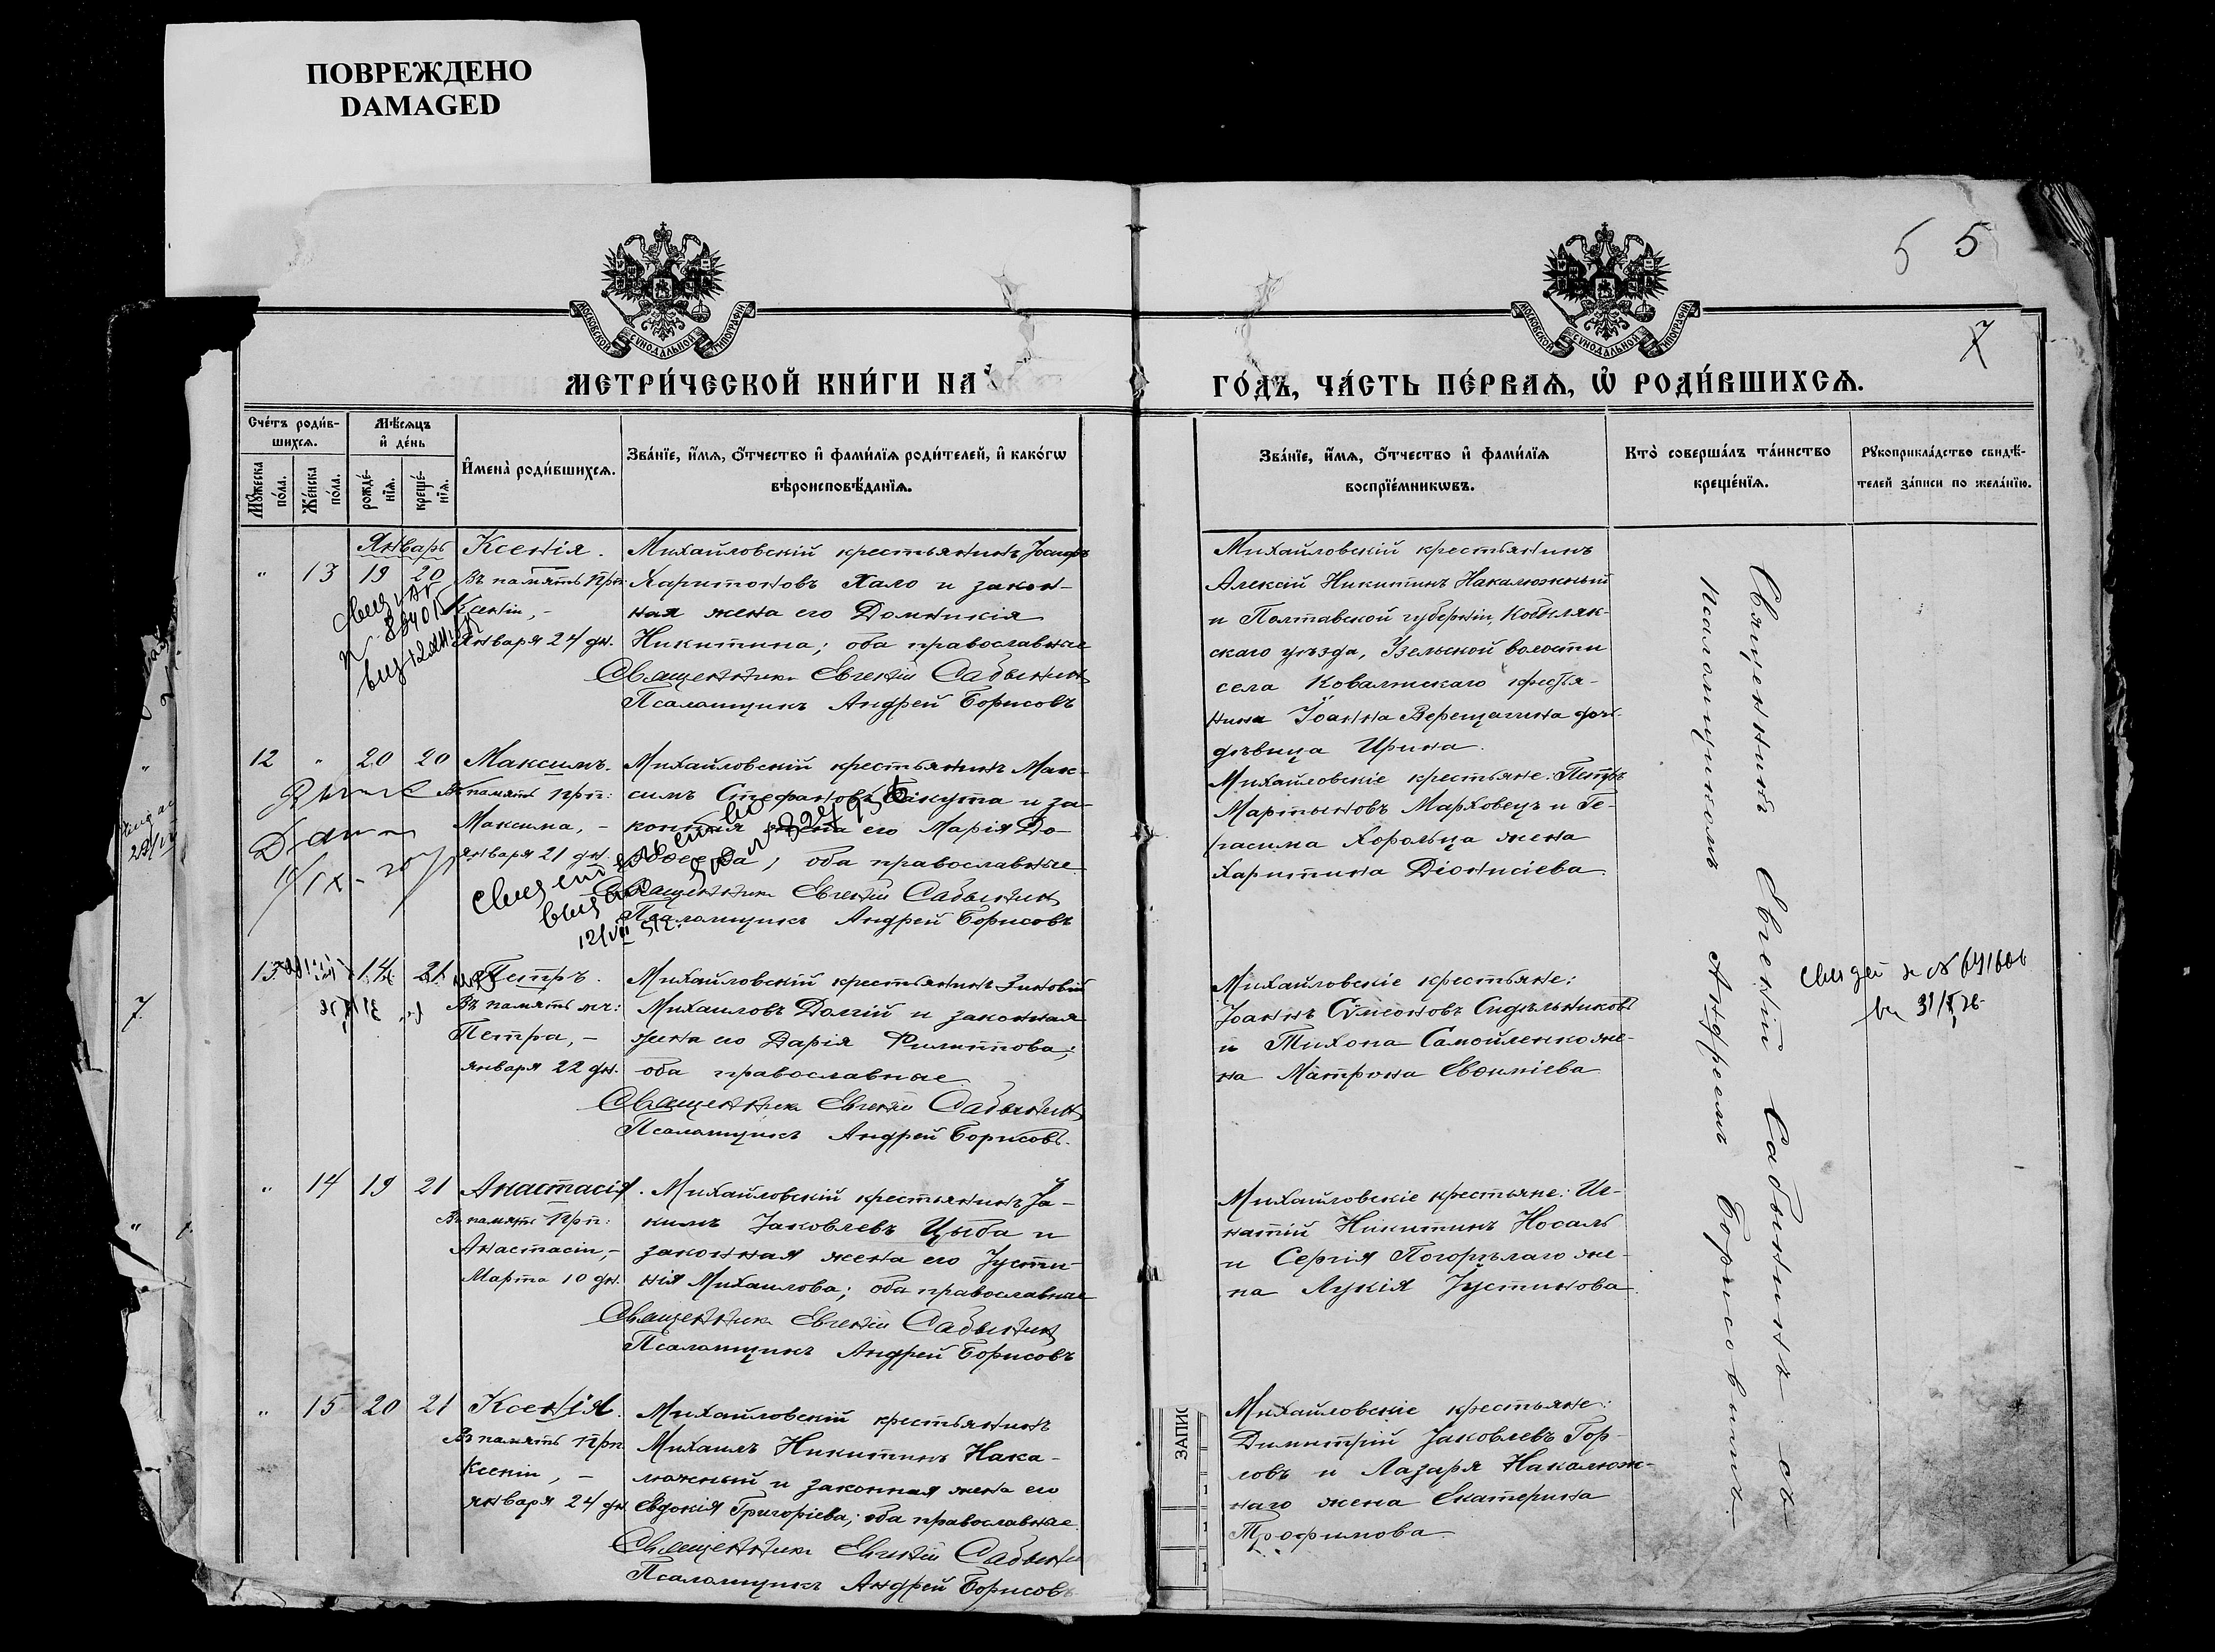 ПОВРЕЖДЕНО
DAMAGED
5 5
7
МОСКОВСКОЙ СУНОДАЛЬНОЙ ТИПОГРАФІИ
МОСКОВСКОЙ СУНОДАЛЬНОЙ ТИПОГРАФІИ
МЕТРИ́ЧЕСКОЙ КНИ́ГИ НА
ГО́ДЪ, ЧА́СТЬ ПЕ́РВАѦ, Ѡ҆ РОДИ́ВШИХСѦ.
Сче́тъ роди́в-
шихсѧ.
Мꙋ́жеска
по́ла.
Же́нска
по́ла.
Мѣ́сѧцъ
и҆ де́нь
рожде́-
нїѧ.
креще́-
нїѧ.
И҆мена̀ роди́вшихсѧ.
Зва́нїе, и҆́мѧ, ѻ҆́тчество и҆ фами́лїѧ роди́телей, и҆ како́гѡ
вѣроисповѣ́данїѧ.
Зва́нїе, и҆́мѧ, ѻ҆́тчество и҆ фами́лїѧ
воспрїе́мникѡвъ.
Кто̀ соверша́лъ та́инство
креще́нїѧ.
Рꙋкоприкла́дство свидѣ́-
телей за́писи по жела́нїю.
Январь
" 13 19 20
Ксенія.
Въ память прп:
Ксеніи, -
Января 24 дн.
Михайловскій крестьянинъ Іосифъ
Харитоновъ Хало и закон-
ная жена его Домникія
Никитина; оба православные
Священникъ Евгеній Сабынинъ
Псаломщикъ Андрей Борисовъ
Михайловскій крестьянинъ
Алексій Никитинъ Накалюжный
и Полтавской губерніи, Кобыляк-
скаго уѣзда, волости
села крестья-
нина Іоанна Верещагина доч.
дѣвица Ирина.
12 " 20 20
Максимъ.
Въ память прп:
Максима, -
января 21 дн.
Михайловскій крестьянинъ Мак-
симъ Стефановъ и за-
конная жена его Марія
оба православные
Священникъ Евгеній Сабынинъ
Псаломщикъ Андрей Борисовъ
Михайловскіе крестьяне: Петръ
Мартыновъ Марховецъ и Ге-
расима Хорольца жена
Харитина Діонисіева
13 " 14 21
Петръ.
Въ память мч:
Петра, -
января 22 дн.
Михайловскій крестьянинъ Зиновій
Михаиловъ Долгій и законная
жена его Дарія Филиппова;
оба православные
Священникъ Евгеній Сабынинъ
Псаломщикъ Андрей Борисовъ.
Михайловскіе крестьяне:
Іоаннъ Сѵмеоновъ Сидѣльниковъ
и Тихона Самойленко же-
на Матрона Евѳиміева
" 14 19 21
Анастасія.
Въ память Прп:
Анастасіи, -
Марта 10 дн.
Михайловскій крестьянинъ Іа-
кимъ Іаковлевъ Цыба и
законная жена его Іусти-
нія Михаилова; оба православные
Священникъ Евгеній Сабынинъ
Псаломщикъ Андрей Борисовъ
Михайловскіе крестьяне: Иг-
натій Никитинъ Носаль
и Сергія Погорѣлаго же-
на Лукія Іустинова
" 15 20 21
Ксенія.
Въ память Прп.
Ксеніи, -
января 24 дн.
Михайловскій крестьянинъ
Михаилъ Никитинъ Нака-
люжный и законная жена его
Евдокія Григоріева; оба православные.
Священникъ Евгеній Сабынинъ
Псаломщикъ Андрей Борисовъ
Михайловскіе крестьяне:
Димитрій Іаковлевъ Гор-
ловъ и Лазаря Накалюж-
наго жена Екатерина
Трофимова
Священникъ Евгеній Сабынинъ съ
псаломщикомъ Андреемъ Борисовымъ.
ЗАПИС